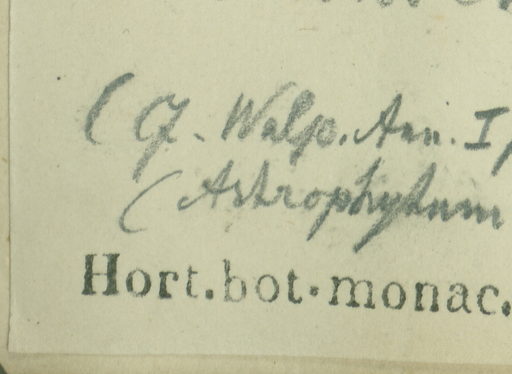 (Cf. Walp. Ann. I
(Astrophytum
Hort. bot. monac.